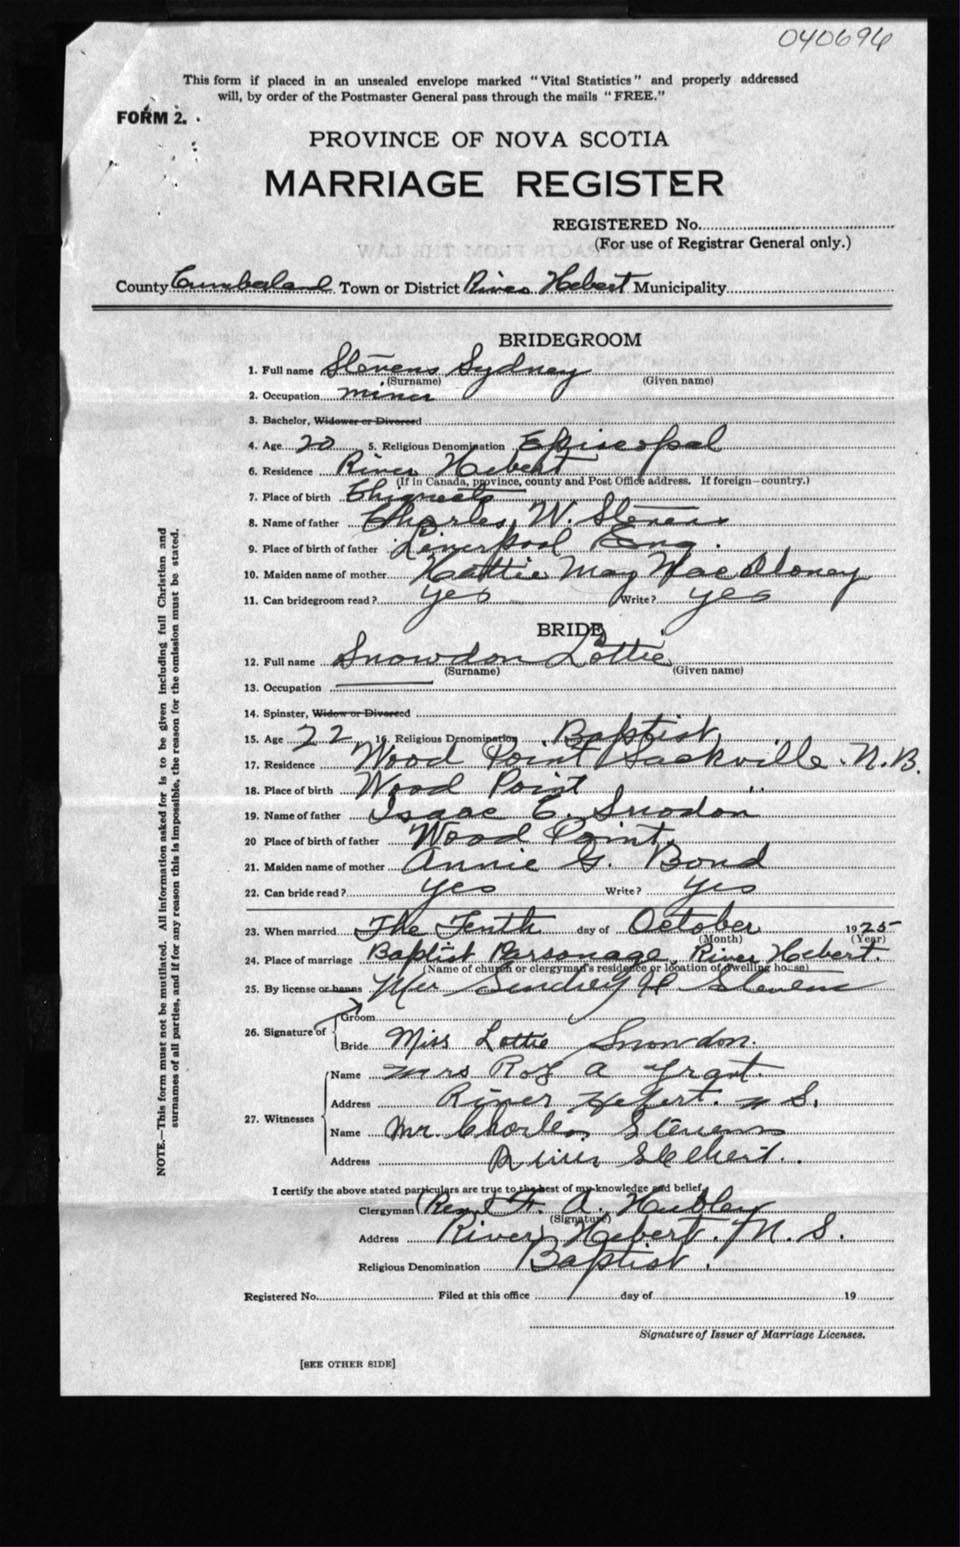 040696
This form if placed in an unsealed envelope marked "Vital Statistics" and properly addressed
will, by order of the Postmaster General pass through the mails "FREE."
FORM 2.
PROVINCE OF NOVA SCOTIA
MARRIAGE REGISTER
REGISTERED No.
(For use of Registrar General only.)
County Cumberland Town or District River Hebert Municipality
BRIDEGROOM
1. Full name Stevens Sydney
(Surname) (Given name)
2. Occupation miner
3. Bachelor, Widower or Divorced
4. Age 20 5. Religious Denomination Episcopal
6. Residence River Hebert
(If in Canada, province, county and Post Office address. If foreign—country.)
7. Place of birth Chignecto
8. Name of father Charles W. Stevens
9. Place of birth of father Liverpool Eng.
10. Maiden name of mother Hattie May MacAloney
11. Can bridegroom read? yes Write? yes
BRIDE
12. Full name Snowdon Lottie
(Surname) (Given name)
13. Occupation
14. Spinster, Widow or Divorced
15. Age 22 16. Religious Denomination Baptist
17. Residence Wood Point Sackville N.B.
18. Place of birth Wood Point "
19. Name of father Isaac C. Snodon
20 Place of birth of father Wood Point
21. Maiden name of mother Annie G. Bond
22. Can bride read? yes Write? yes
23. When married The Tenth day of October 1925
(Month) (Year)
24. Place of marriage Baptist Parsonage, River Hebert.
(Name of church or clergyman's residence or location of dwelling house)
25. By license or banns Mr Sindney H Stevens
26. Signature of
Groom
Bride Miss Lottie Snowdon.
27. Witnesses
Name Mrs Roy A Grant.
Address River Hebert. N S.
Name Mr. Charles Stevens
Address River Hebert.
I certify the above stated particulars are true to the best of my knowledge and belief,
Clergyman A. Hubley
(Signature)
Address River Hebert. N. S.
Religious Denomination Baptist.
Registered No. Filed at this office day of 19
Signature of Issuer of Marriage Licenses.
[SEE OTHER SIDE]
NOTE.—This form must not be mutilated. All information asked for is to be given including full Christian and
surnames of all parties, and if for any reason this is impossible, the reason for the omission must be stated.